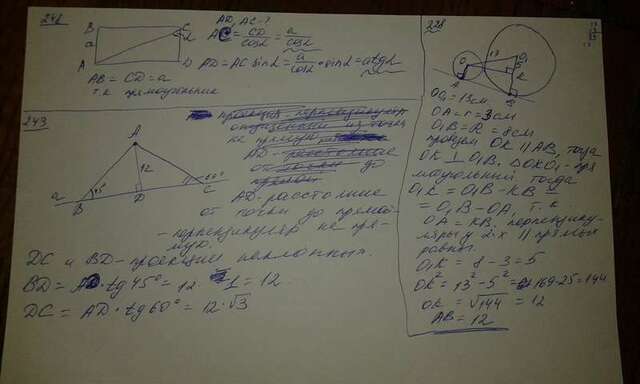 241
B C
a α
A D
AD, AC - ?
AC = CD/cosα = a/cosα
AD = AC sinα = a/cosα · sinα = a tgα
AB = CD = a
т.к. прямоугольник
243
A
12
45° 60°
a B D C
AD - расстояние
от точки до прямой
- перпендикуляр на пря-
мую.
DC и BD - проекции наклонных.
BD = AD · tg 45° = 12 · 1 = 12.
DC = AD · tg 60° = 12 · √3
228
O 13 O₁
K
A B
OO₁ = 13 см
OA = r = 3 см
O₁B = R = 8 см
проведем OK || AB, тогда
OK ⊥ O₁B, △OKO₁ - пря-
моугольный тогда
O₁K = O₁B - KB =
= O₁B - OA, т.к.
OA = KB, перпендику-
ляры к 2х || прямым
равны.
O₁K = 8 - 3 = 5
OK² = 13² - 5² = 169 - 25 = 144
OK = √144 = 12
AB = 12